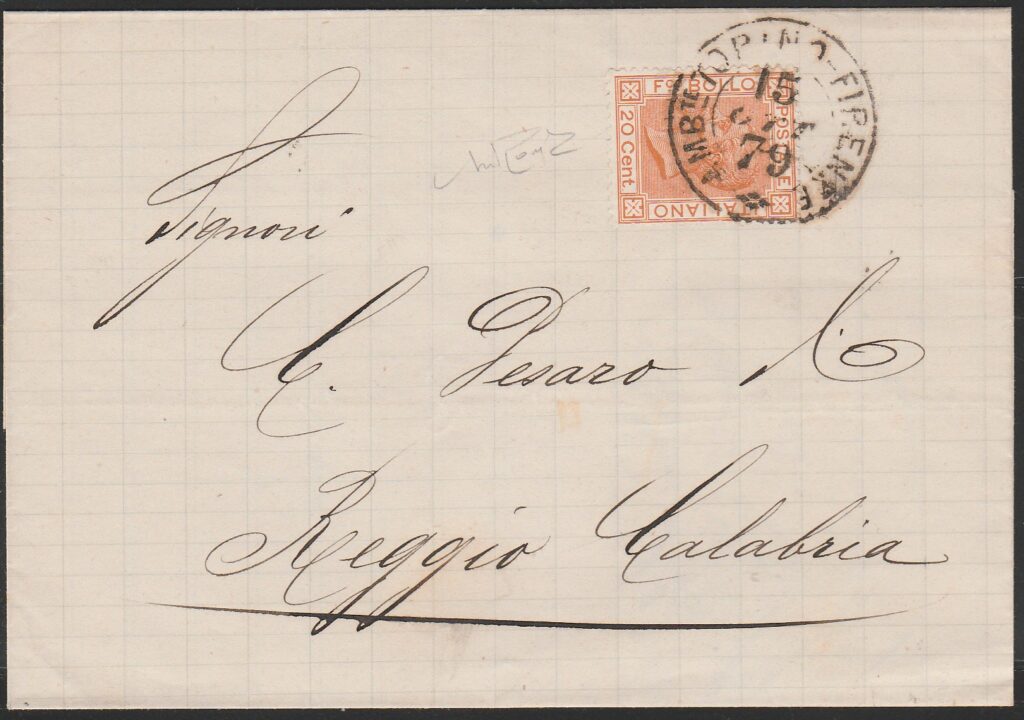 AMB.TE TORINO-FIRENZE
15
79
Fco BOLLO
POSTALE
ITALIANO
20 Cent.
Signori
C. Pesaro
Reggio Calabria